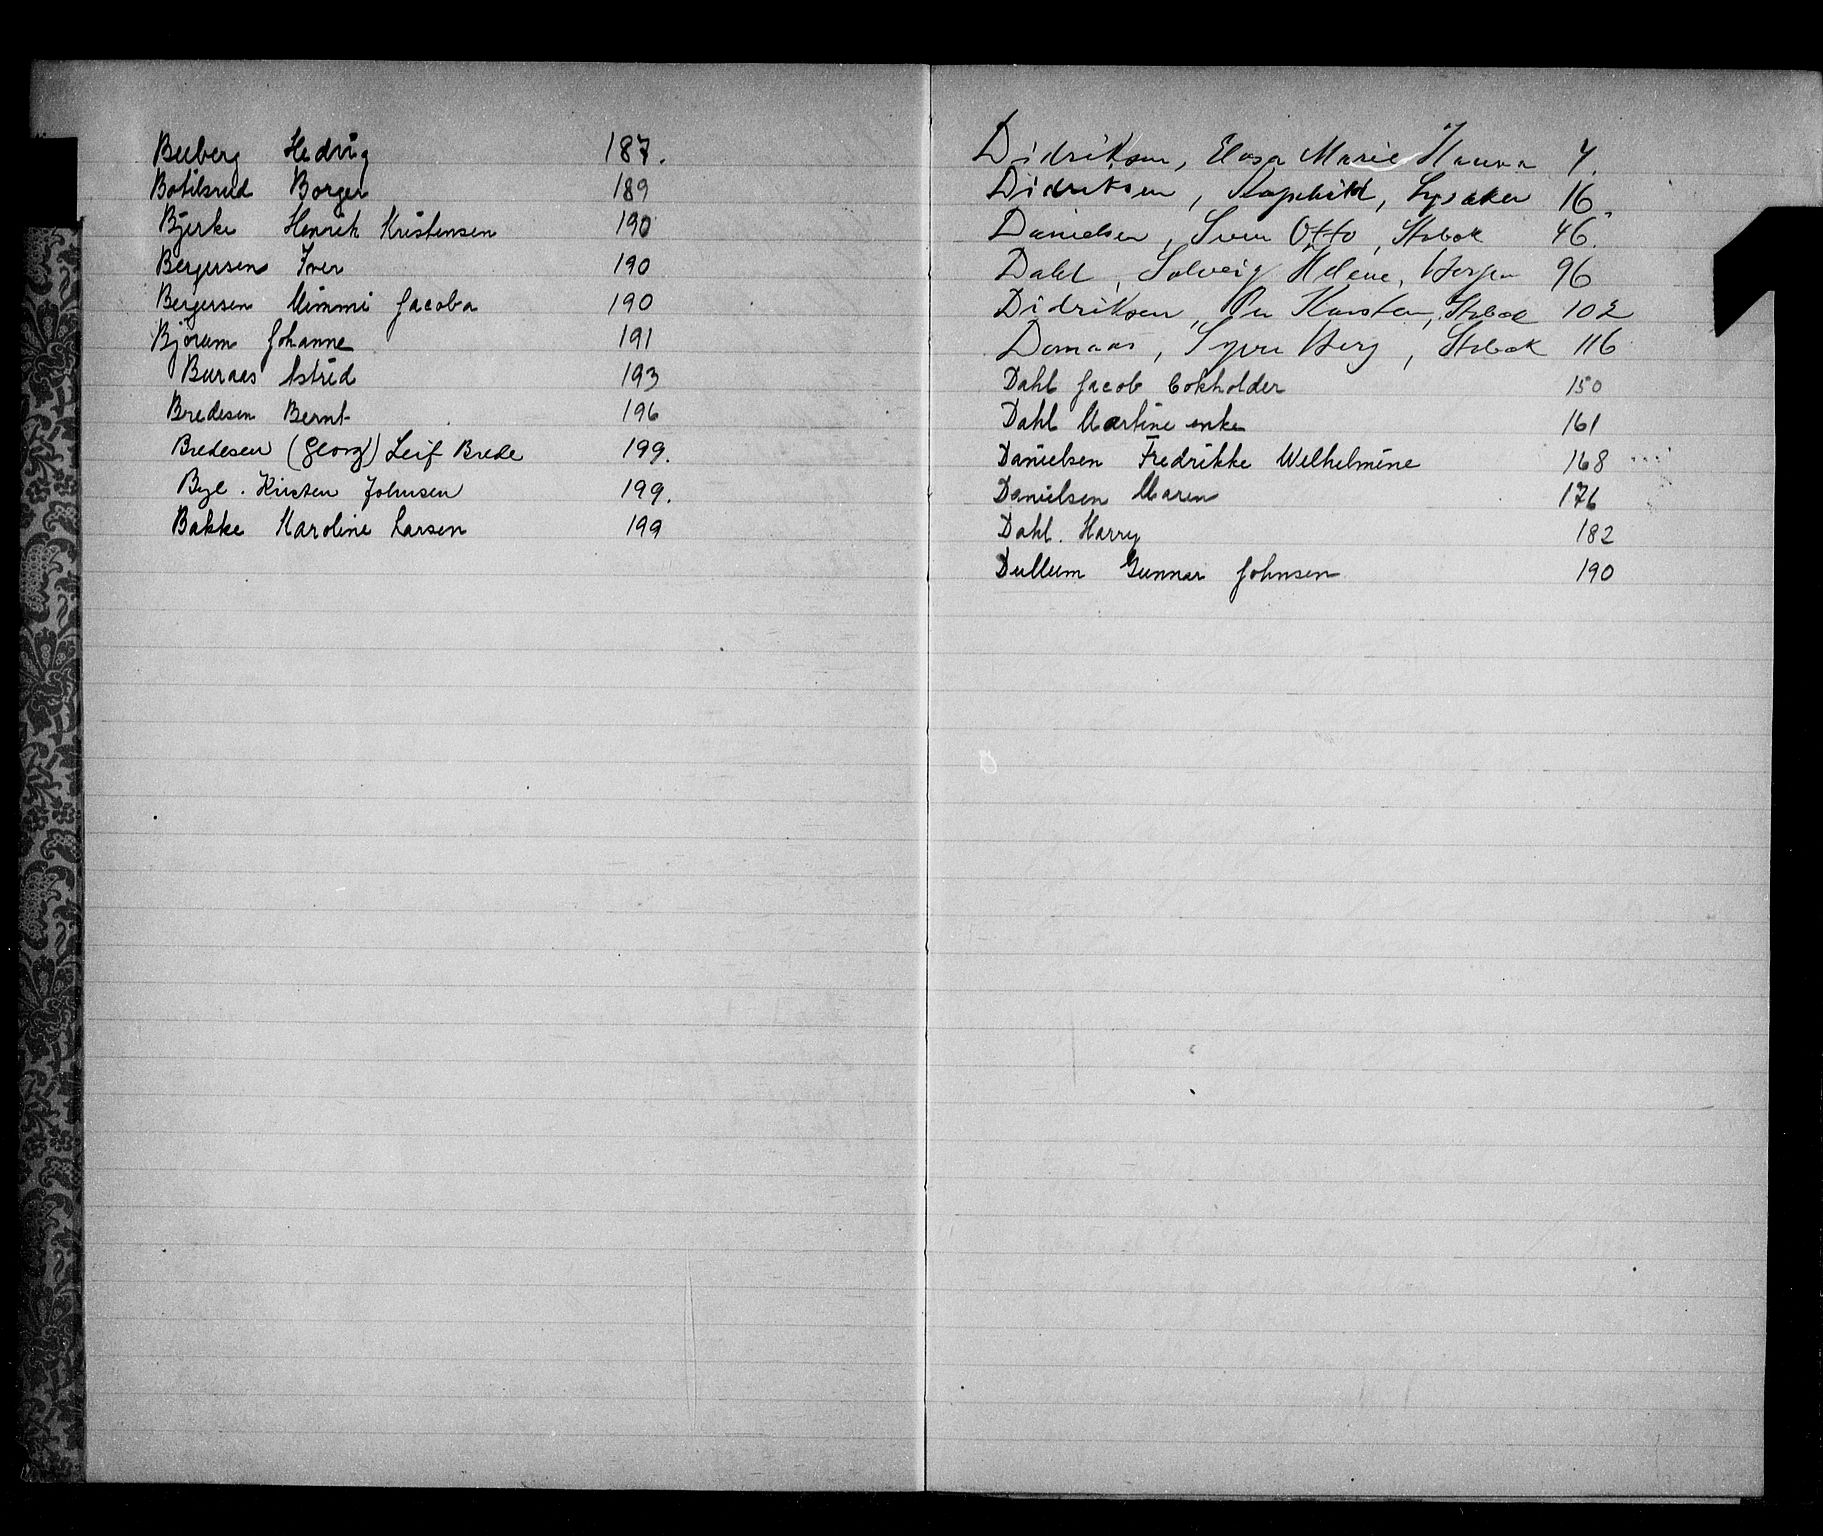 Buberg Hedvig 187.
Botilsrud Borger 189
Bjerke Henrik Kristensen 190
Bergersen Iver 190
Bergersen Mimmi Jacoba 190
Bjørum Johanne 191
Buraas Astrid 193
Bredesen Bernt 196
Bredesen (Georg) Leif Brede 199.
Kirsten Johnsen 199.
Bakke Karoline Larsen 199
Didriksen, Marie Hanna
Didriksen, Lysaker 16.
Danielsen, Sven Otto, Stabæk 46.
Dahl, Solveig Helene, 96
Didriksen, Per Karsten, Stabæk 102
Stabæk 116
Dahl Jacob Cokholder 150
Dahl Martine enke 161
Danielsen Fredrikke Wilhelmine 168
Danielsen Maren 176
Dahl. Harry 182
Dullum Gunnar Johnsen 190